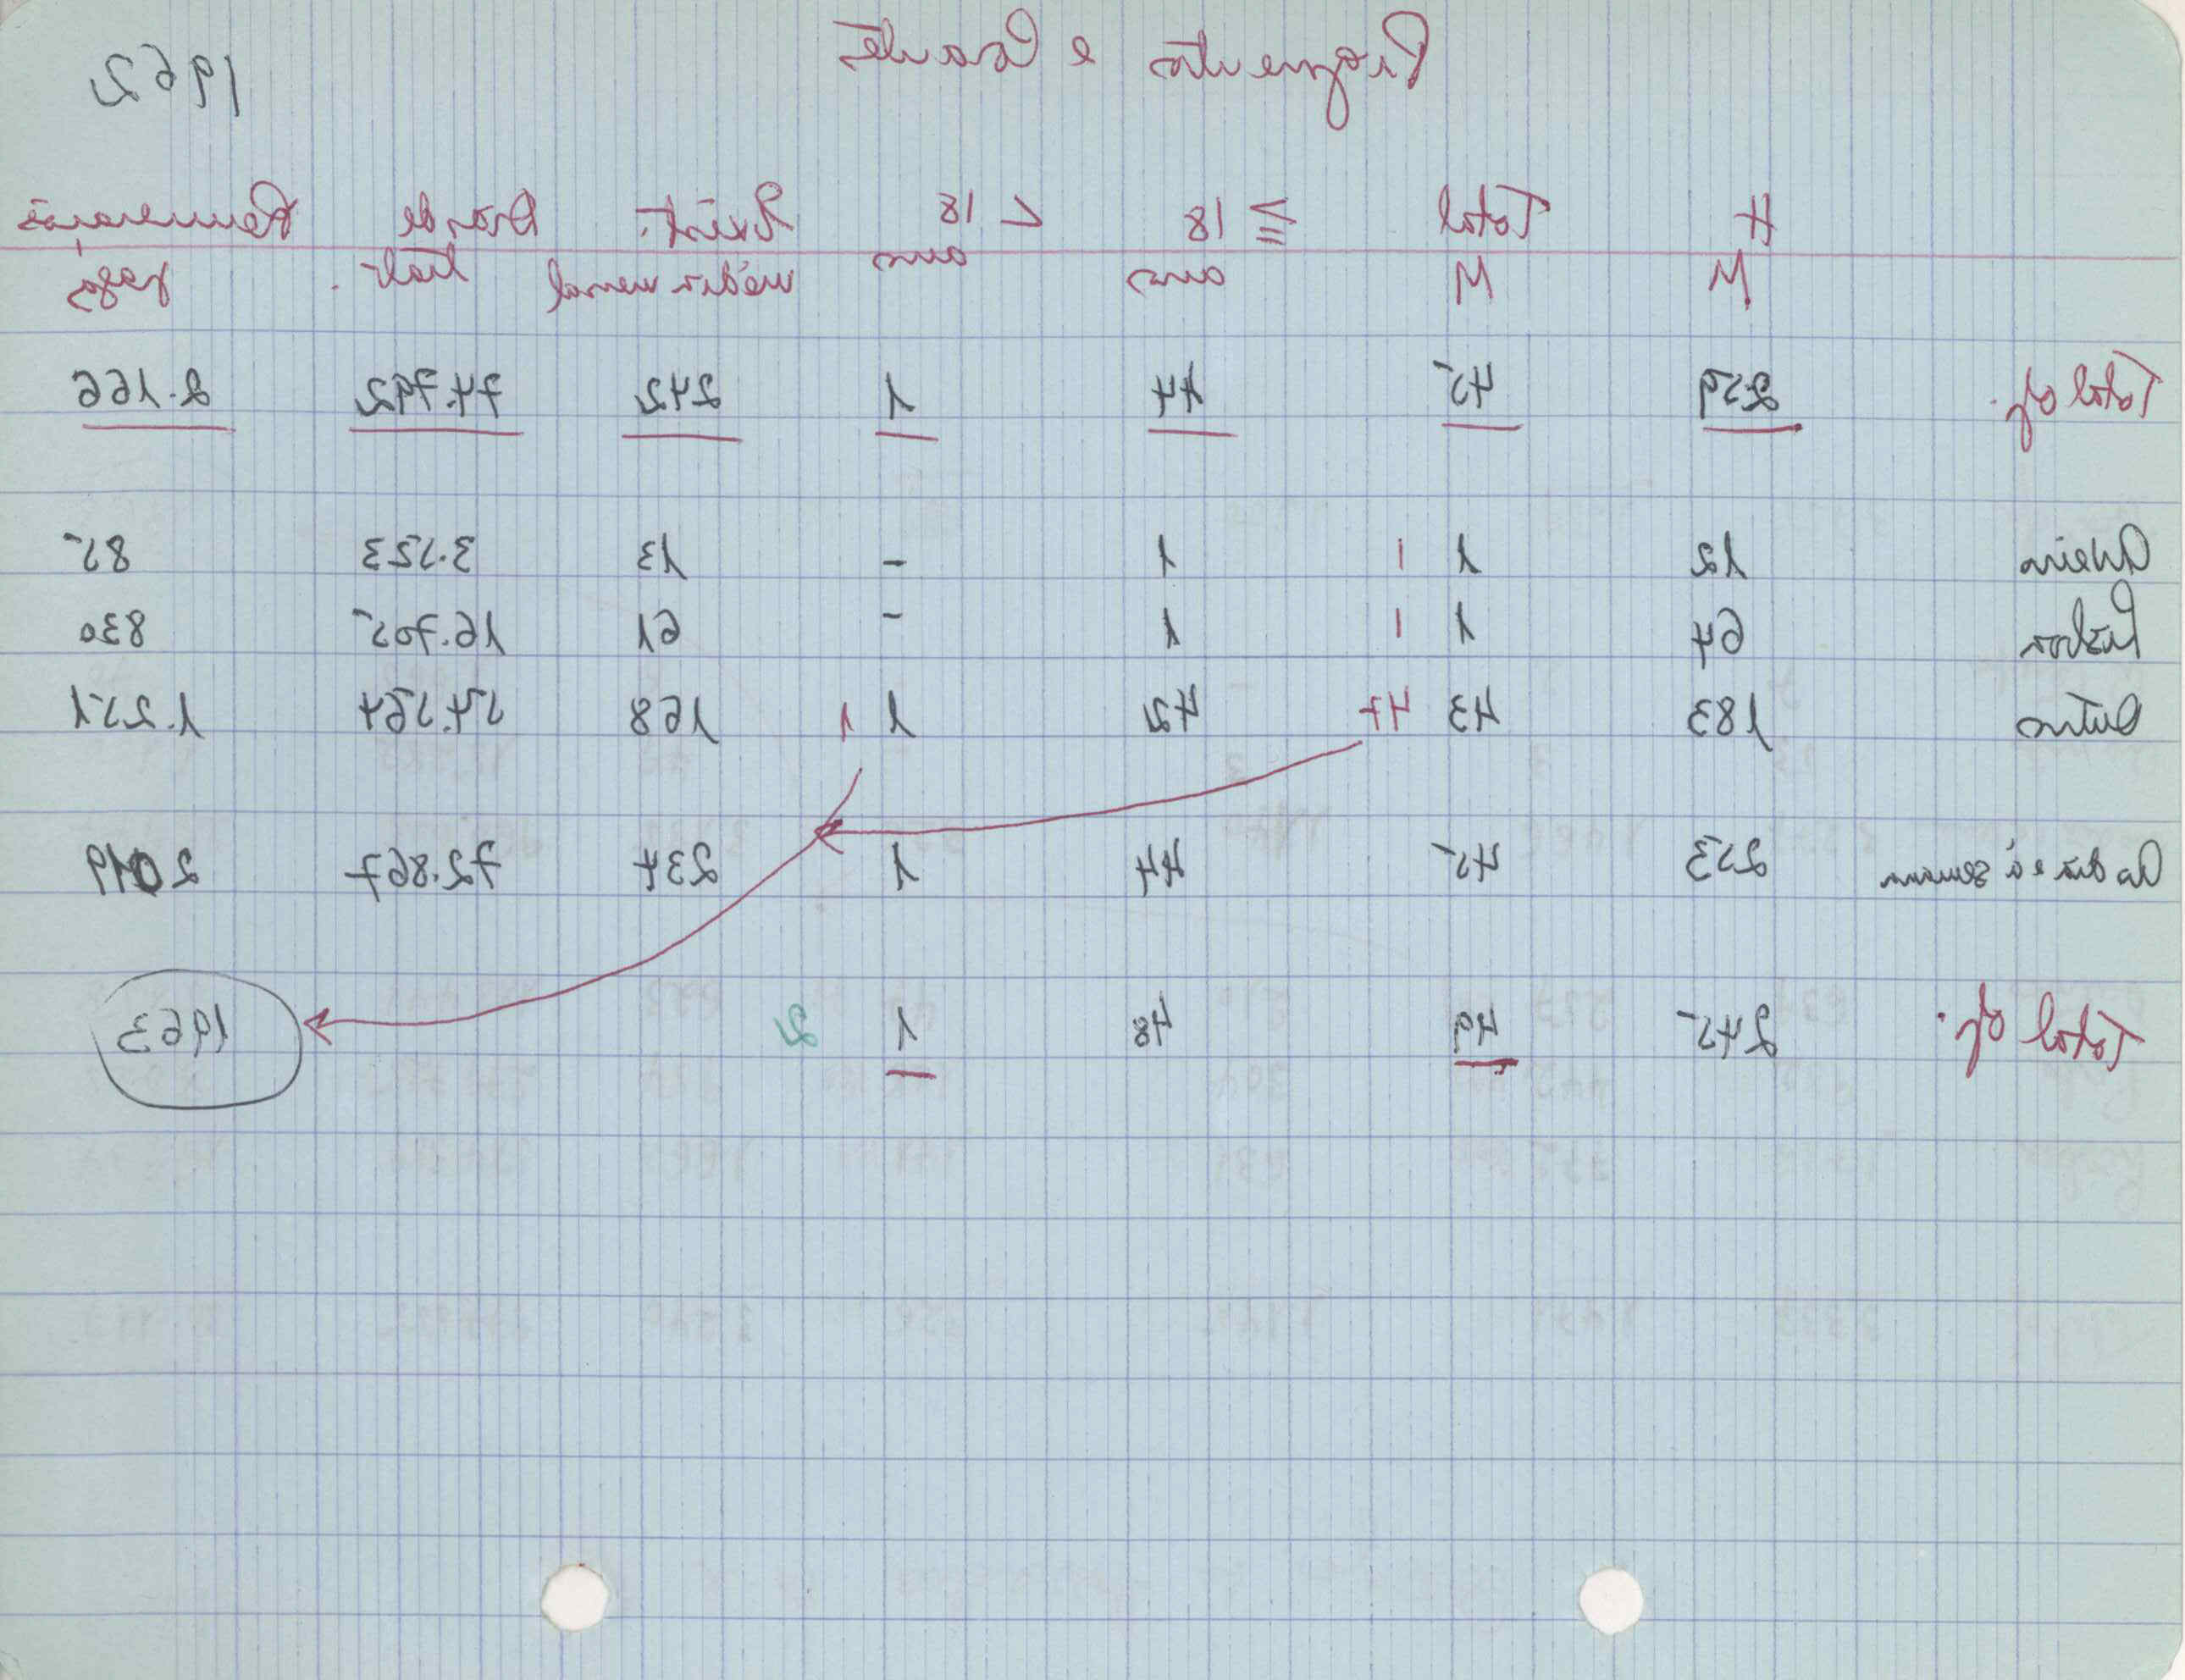 Pigmentos e Corantes 1962
H M Total M ≧ 18 anos < 18 anos Exist. média mensal Dias de trab. Remunerações pagas
Total g. 259 45 44 1 242 74.792 2.166
Aveiro 12 1 1 1 - 13 3.523 85
Lisboa 64 1 1 1 - 61 16.705 830
Outros 183 43 47 42 1 1 168 54.564 1.251
Ao dia e à semana 253 45 44 1 234 72.867 2.019
Total g. 245 49 48 1 2 1963